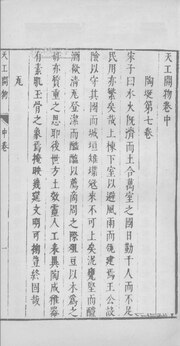 天工開物卷中
陶埏第七卷
宋子曰水火既濟而土合萬室之國日勤千人而不足
民用亦繁矣哉上棟下室以避風雨而瓴建焉王公設
險以守其國而城垣雉堞寇來不可上矣泥甕堅而醴
酒欲清瓦登潔而醯醢以薦商周之際俎豆以木為之
毋亦質重之思耶後世方土效靈人工表異陶成雅器
有素肌玉骨之象焉掩映几筵文明可掬豈終固哉
瓦
天工開物
中卷